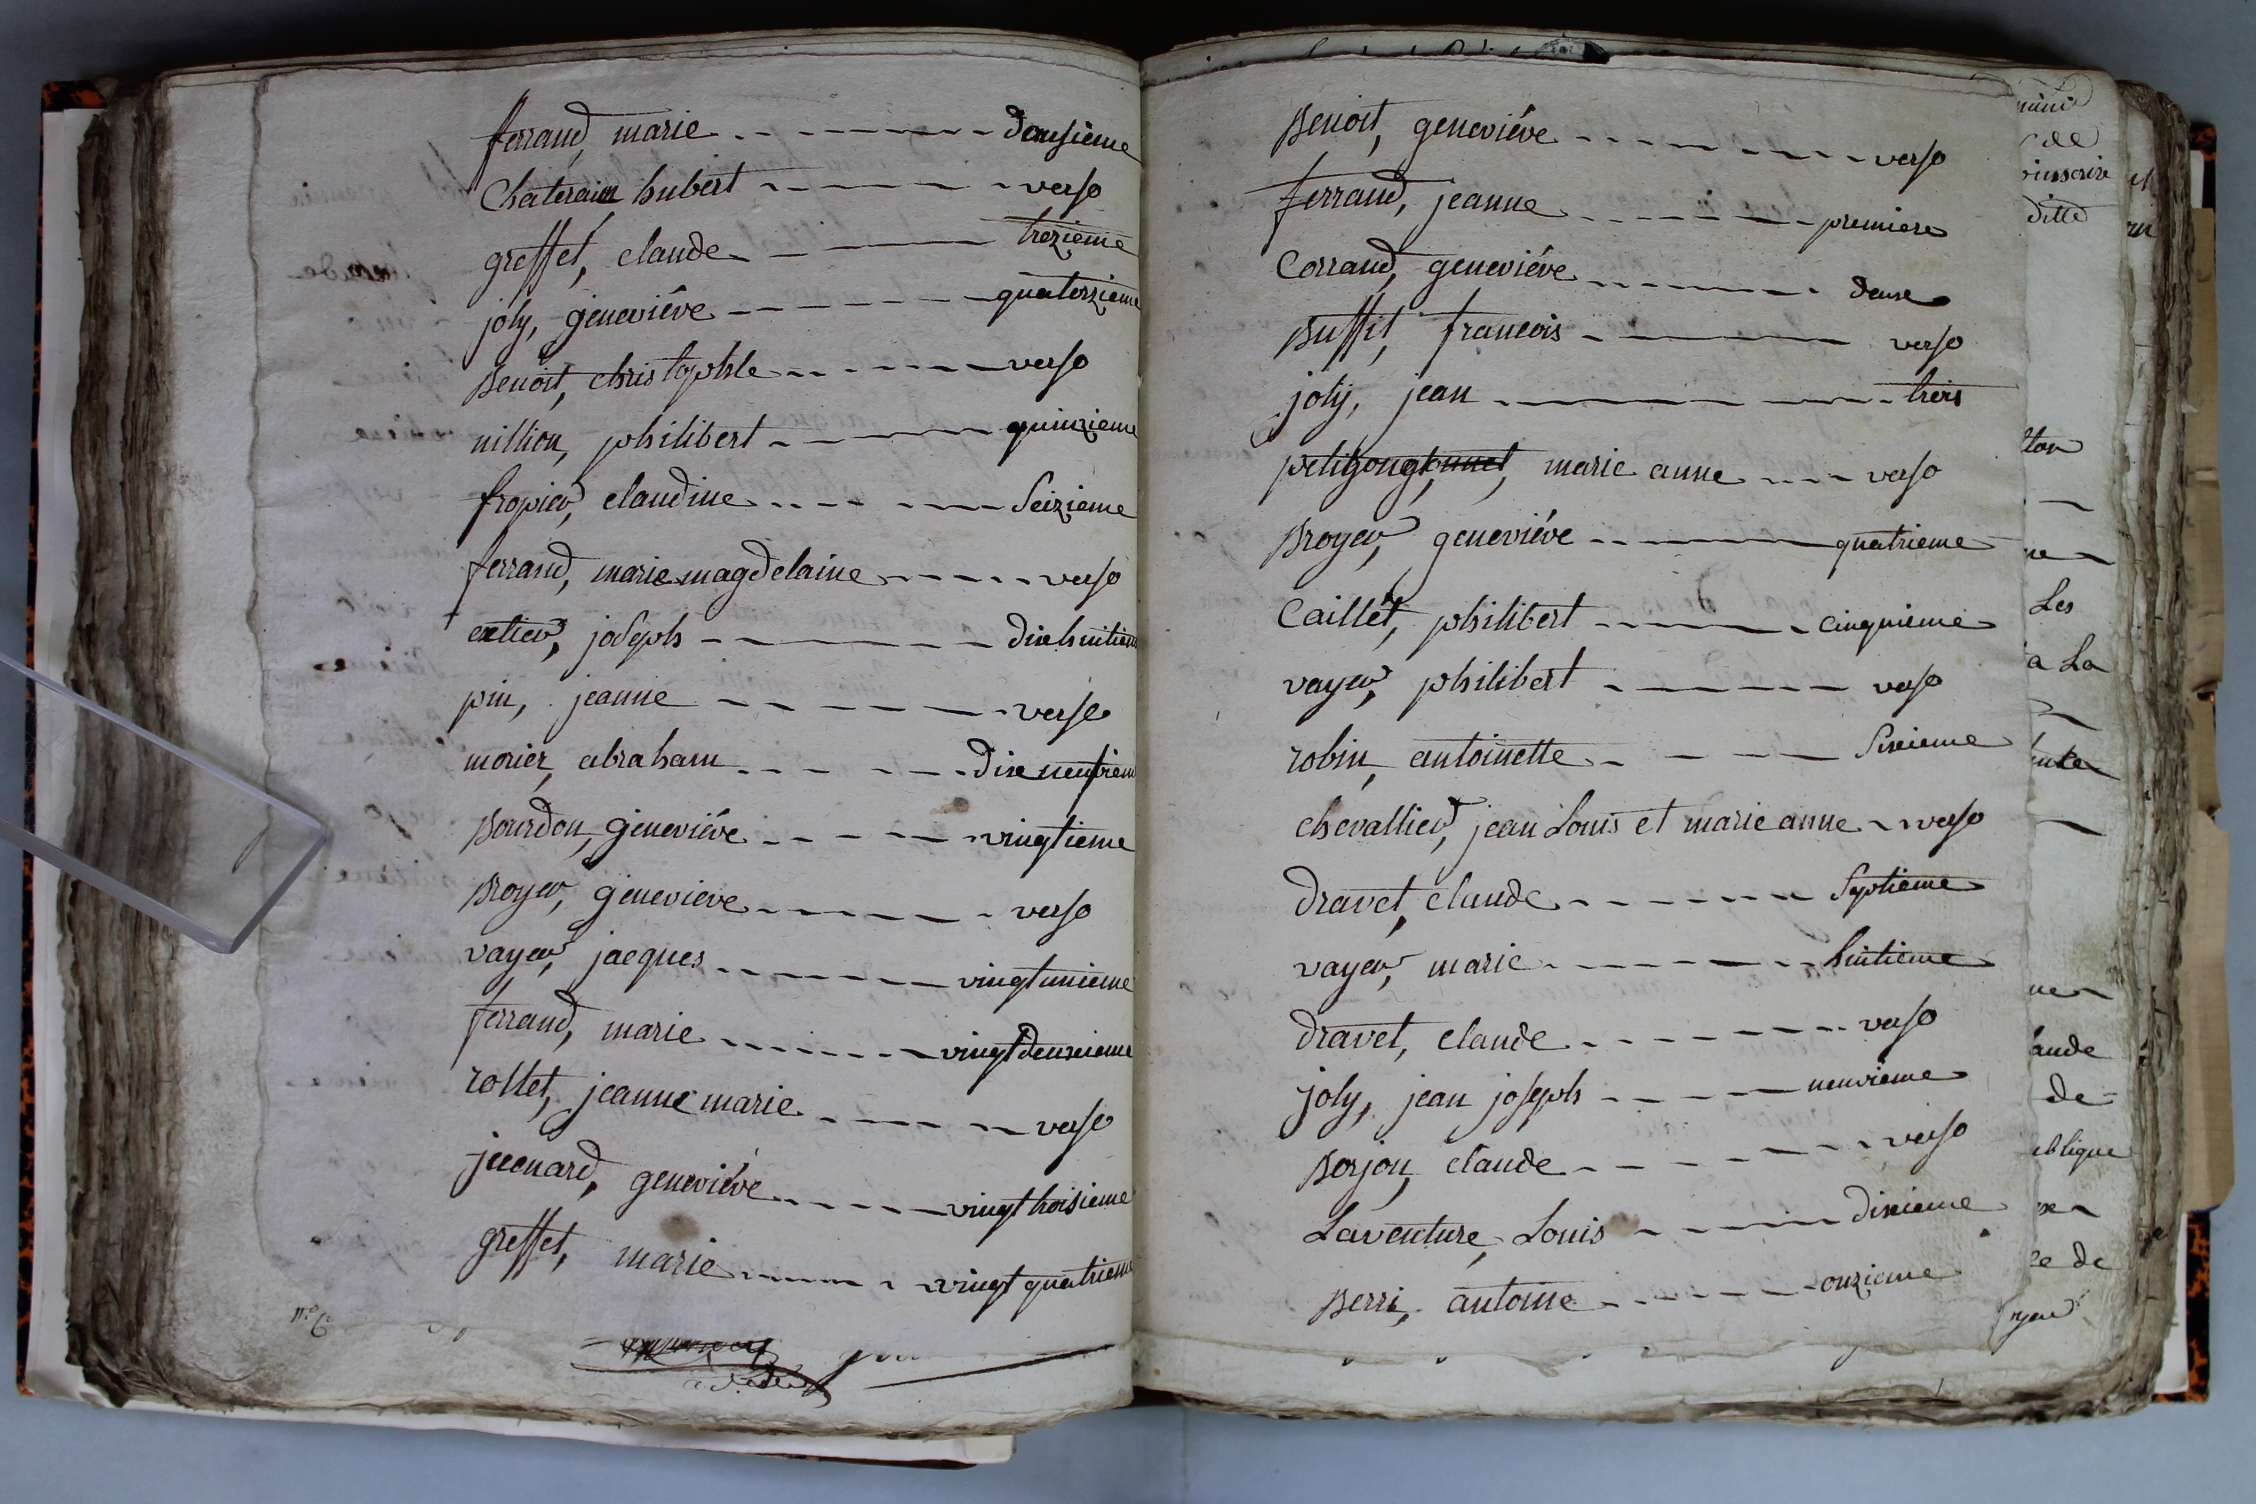 ferrand, marie dousieme
Chaterain hubert verso
greffet, claude trezieme
joly, geneviéve quatorzieme
Benoit, christophle verso
nillion, philibert quinzieme
fropier, claudine Seizieme
ferrand, marie magdelaine verso
extier, joseph dixhuitieme
pin, jeanne verso
morier, abraham dixneufvieme
Bourdon, geneviéve vingtieme
Broyer, genevieve verso
vayer, jacques vingtunieme
ferrand, marie vingtdeuxieme
rollet, jeanne marie verso
geneviéve vingttroisieme
greffet, marie vingtquatrieme
Benoit, geneviéve verso
ferrand, jeanne premiere
Corrand, geneviéve deuxe
Buffet, francois verso
joly, jean trois
petitjong, marie anne verso
Broyer, geneviéve quatrieme
Caillet, philibert cinquieme
vayer, philibert verso
robin, antoinette Sixieme
chevallier, jean Louis et marie anne verso
dravet, claude Septieme
vayer, marie huitieme
dravet, claude verso
joly, jean joseph neuvieme
Borjon, claude verso
Laventure, Louis dixieme
Berri, antoine onzieme
de
Les
a La
de
ce de